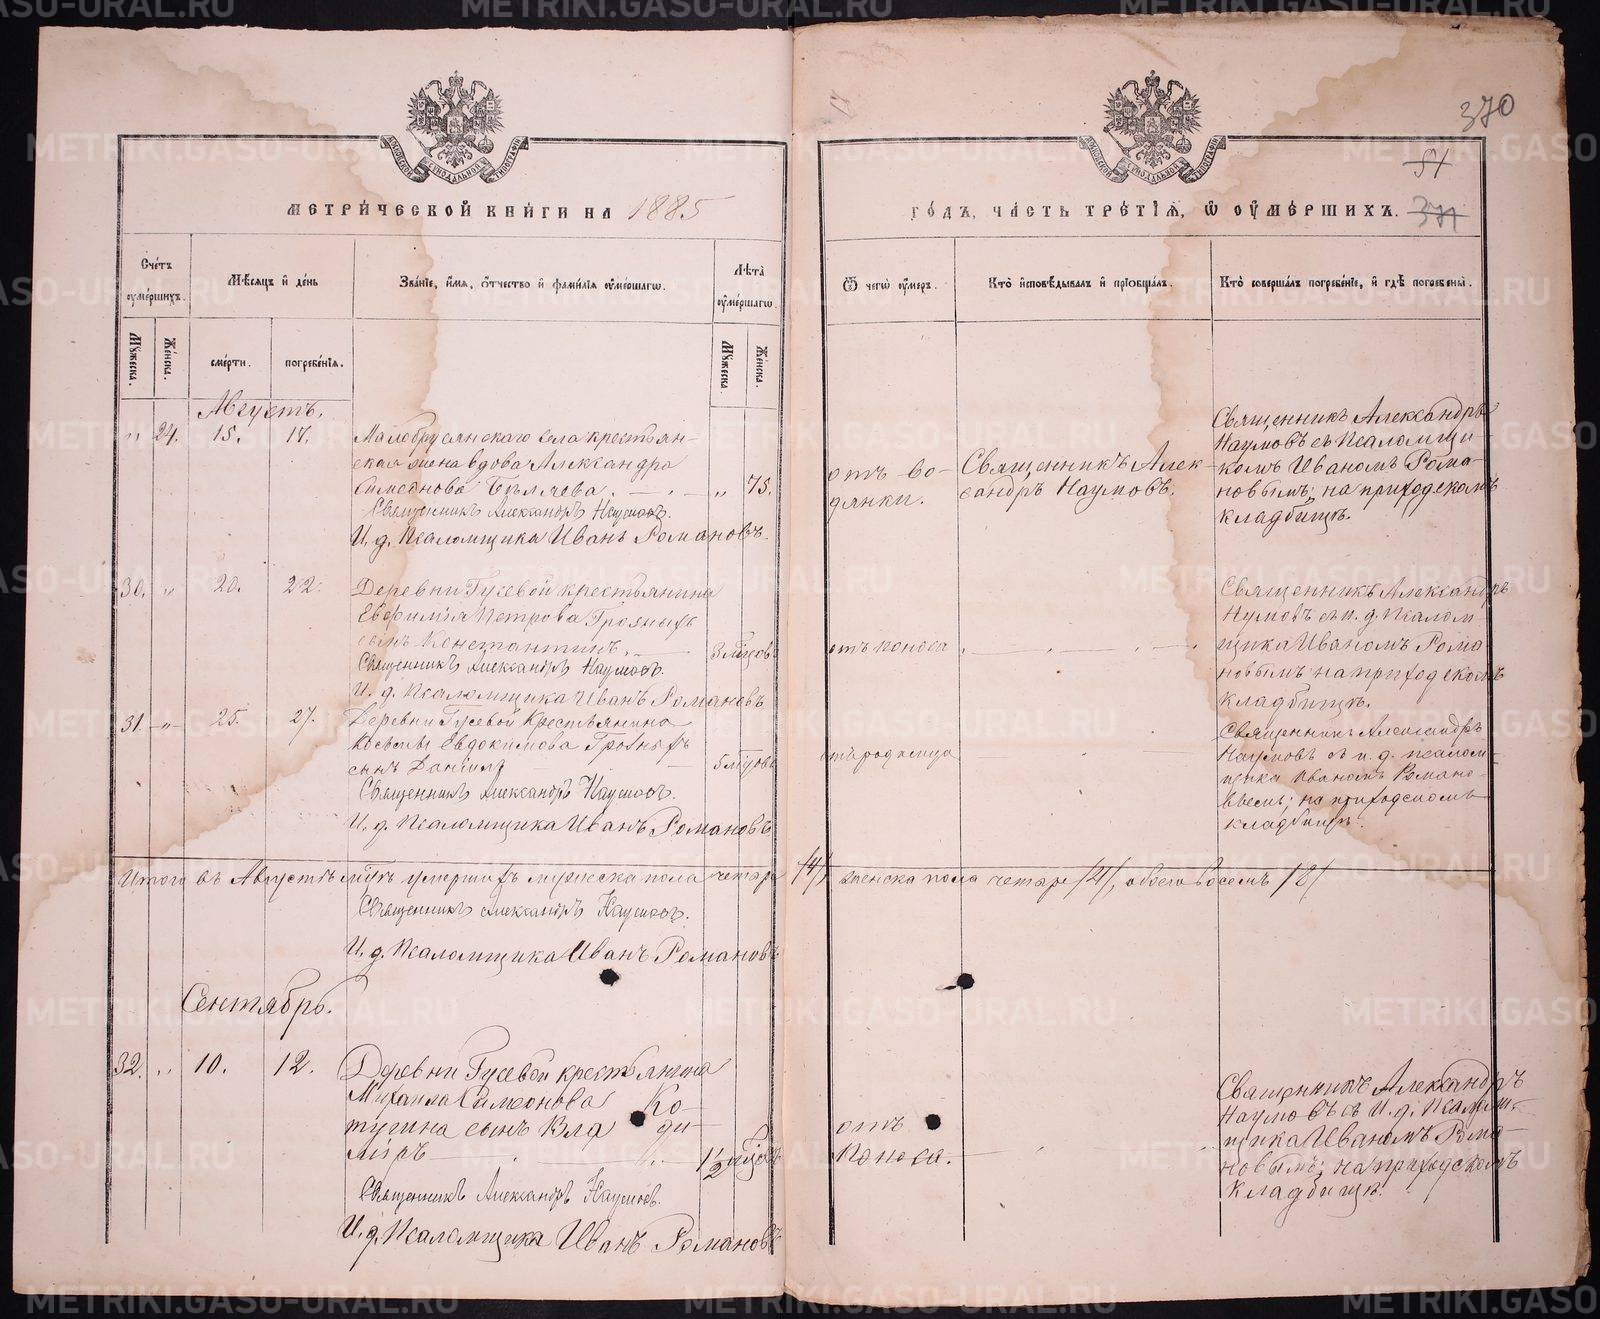 370
51
371
МОСКОВСКОЙ СѴНОДАЛЬНОЙ ТИПОГРАФІИ
МОСКОВСКОЙ СѴНОДАЛЬНОЙ ТИПОГРАФІИ
МЕТРИЧЕСКОЙ КНИГИ НА 1885
ГОДЪ, ЧАСТЬ ТРЕТІЯ, Ѿ ОУМЕРШИХЪ.
Счетъ оумершихъ.
Мѣсяцъ и день
Званіе, имя, отчество и фамилія оумершагѡ.
Лѣта оумершагѡ.
Ѿ чегѡ оумеръ.
Кто исповѣдывалъ и пріобщалъ.
Кто совершалъ погребеніе, и гдѣ погребены.
Мужеска.
Женска.
смерти.
погребенія.
Мужеска.
Женска.
Августъ.
" 24. 15. 17.
Малобрусянскаго села крестьян-
ская жена вдова Александра
Симеонова Бѣляева. " 75.
Священникъ Александръ Наумовъ.
И. д. Псаломщика Иванъ Романовъ
отъ во-
дянки.
Священникъ Алек-
сандръ Наумовъ.
Священникъ Александръ
Наумовъ съ Псаломщи
комъ Иваномъ Рома-
новымъ; на приходскомъ
кладбищѣ.
30. " 20. 22.
Деревни Гусевой крестьянина
Евфимія Петрова Грозныхъ
сынъ Константинъ. 3 мѣсцовъ
Священникъ Александръ Наумовъ.
И. д. Псаломщика Иванъ Романовъ
отъ поноса
Священникъ Александръ
Нумовъ съ и. д. Псалом
щика Иваномъ Рома
новымъ на приходскомъ
кладбищѣ.
31. " 25. 27.
Деревни Гусевой Крестьянина
Космы Евдокимова Грозныхъ
сынъ Даніилъ 5 мѣсцовъ
Священникъ Александръ Наумовъ.
И. д. Псаломщика Иванъ Романовъ
отъ родимца
Священникъ Александръ
Наумовъ съ и. д. псалом-
щика Иваномъ Романо-
вымъ; на приходскомъ
кладбищѣ.
Итого въ Августѣ мцѣ умершихъ мужеска пола четыре /4/, женска пола четыре /4/, обоего восемь /8/
Священникъ Александръ Наумовъ.
И. д. Псаломщика Иванъ Романовъ
Сентябрь.
32. " 10. 12.
Деревни Гусевой крестьянина
Михаила Симеонова Ко-
тугина сынъ Влади-
міръ 1 1/2 мѣсцъ
Священникъ Александръ Наумовъ.
И. д. Псаломщика Иванъ Романовъ
отъ
Поноса.
Священникъ Александръ
Наумовъ съ И. д. Псалом-
щика Иваномъ Рома-
новымъ; на приходскомъ
Кладбищѣ.
METRIKI.GASO-URAL.RU